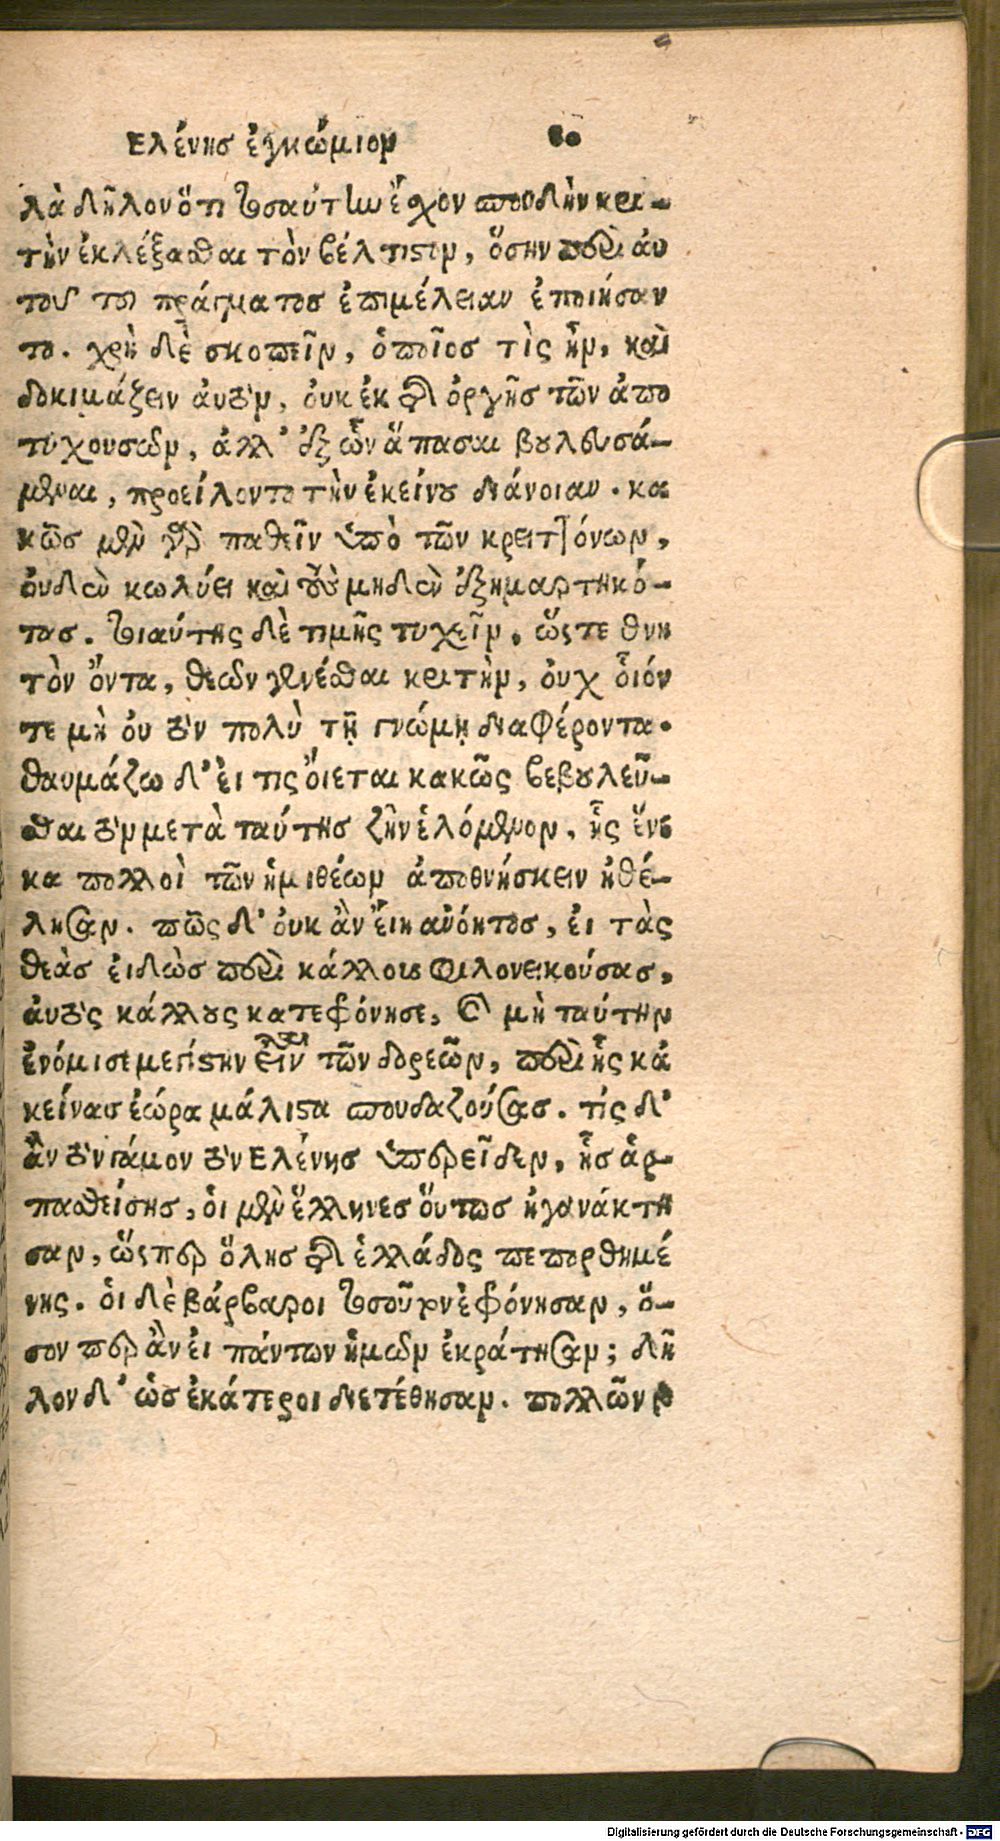 Ελένησ ἐγκώμιον 80
λὰ δῆλον ὅτι τοσαύτην ἔχον σπουδὴν κρι-
τὴν ἐκλέξασθαι τὸν βέλτιστον, ὅσην περὶ αὐ
τοῦ τοῦ πράγματοσ ἐπιμέλειαν ἐποιήσαν
το. χρὴ δὲ σκοπεῖν, ὁποῖοσ τὶς ἦν, καὶ
δοκιμάζειν ἀυτὸν, ὀυκ ἐκ τῆς ὀργῆσ τῶν ἀπο
τυχουσῶν, ἀλλ' ἐξ ὧν ἅπασαι βουλευσά-
μεναι, προείλοντο τὴν ἐκείνου διάνοιαν. κα
κῶσ μὲν γὰρ παθεῖν ὑπὸ τῶν κρειττόνων,
ὀυδὲν κωλύει καὶ τοὺς μηδὲν ἐξημαρτηκό-
τασ. τοιαύτης δὲ τιμῆς τυχεῖν, ὥστε θνη
τὸν ὄντα, θεῶν γενέσθαι κριτὴν, ὀυχ οἷόν
τε μὴ ὀυ τὸν πολὺ τῇ γνώμῃ διαφέροντα.
θαυμάζω δ' ἐι τις ὄιεται κακῶς βεβουλεῦ-
σθαι τὸν μετὰ ταύτησ ζῆν ἑλόμενον, ἧς ἕνε
κα πολλοὶ τῶν ἡμιθέων ἀποθνήσκειν ἠθέ-
λησαν. πῶς δ' ὀυκ ἂν ἔιη ανόητοσ, ἐι τὰς
θεὰσ ἐιδὼσ περὶ κάλλουσ φιλονεικούσασ,
ἀυτὸς κάλλους κατεφρόνησε, καὶ μὴ ταύτην
ἐνόμισε μεγίστην εἶναι τῶν δορεῶν, περὶ ἧς κἀ
κείνασ ἑώρα μάλιστα σπουδαζούσασ. τίς δ'
ἂν τὸν γάμον τὸν Ελένησ ὑπερεῖδεν, ἧσ ἁρ-
παθείσησ, ὁι μὲν ἕλληνεσ ὅυτωσ ἠγανάκτη
σαν, ὥςπερ ὅλησ τῆς ἑλλάδος πεπορθημέ
νης. ὁι δὲ βάρβαροι τοσοῦτον ἐφρόνησαν, ὅ-
σον περ ἂν ἐι πάντων ἡμῶν ἐκράτησαν; δῆ
λον δ' ὡσ ἑκάτεροι διετέθησαν. πολλῶν γὰρ
Digitalisierung gefördert durch die Deutsche Forschungsgemeinschaft - DFG